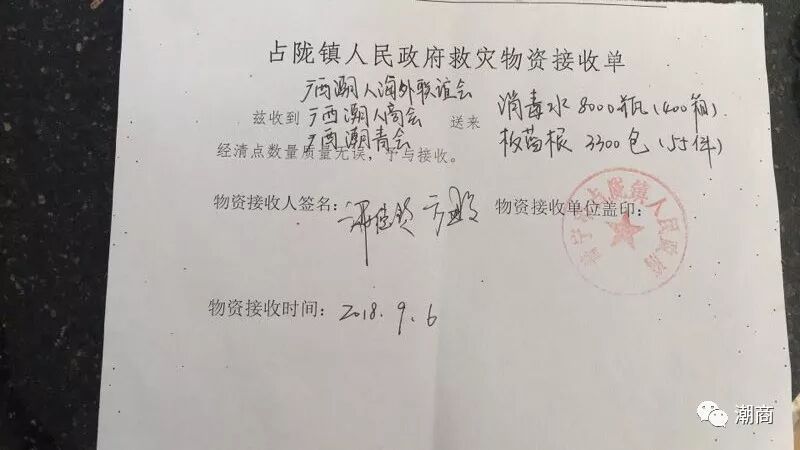 占陇镇人民政府救灾物资接收单
广西潮人海外联谊会
兹收到 广西潮人商会 送来 消毒水 8000瓶(400箱)
广西潮青会 板蓝根 3300包(55件)
经清点数量质量无误,予与接收。
物资接收人签名: 物资接收单位盖印:
普宁市占陇镇人民政府
物资接收时间: 2018.9.6
潮商